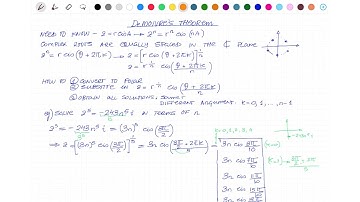 DeMOIVRE'S THEOREM
NEED TO KNOW - z = r cis θ → zⁿ = rⁿ cis (nθ)
COMPLEX ROOTS ARE EQUALLY SPACED IN THE ℂ PLANE
zⁿ = r cis (θ + 2πk) → z = [r cis (θ + 2πk)]^(1/n)
z = r^(1/n) cis (θ + 2πk / n)
HOW TO ① CONVERT TO POLAR
② SUBSTITUTE IN z = r^(1/n) cis (θ + 2πk / n)
③ OBTAIN ALL SOLUTIONS,
DIFFERENT ARGUMENT. K = 0, 1, ... , n-1
eg) SOLVE z⁵ = -243n⁵ i IN TERMS OF n
z⁵ = -243n⁵ i = (3n)⁵ cis (3π/2)
K = 0, 1, 2, 3, 4
→ z = [(3n)⁵ cis (3π/2)]^(1/5) = 3n cis (3π/2 + 2πk / 5) =
3n cis 3π/10
3n cis 7π/10
3n cis 11π/10
3n cis 15π/10